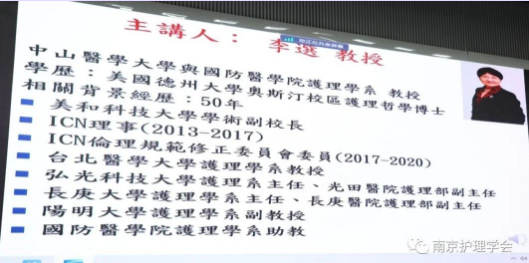 主講人： 李選 教授
中山醫學大學與國防醫學院護理學系 教授
學歷：美國德州大學奧斯汀校區護理哲學博士
相關背景經歷：50年
美和科技大學學術副校長
ICN理事(2013-2017)
ICN倫理規範修正委員會委員(2017-2020)
台北醫學大學護理學系教授
弘光科技大學護理系主任、光田醫院護理部副主任
長庚大學護理學系主任、長庚醫院護理部副主任
陽明大學護理學系副教授
國防醫學院護理學系助教
南京护理学会